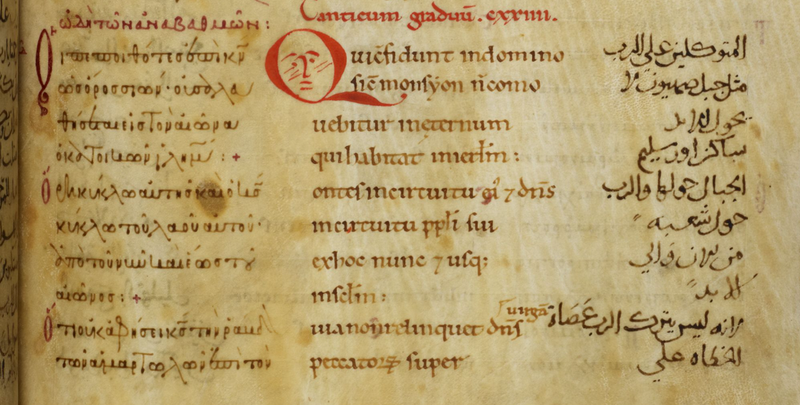 ὠδὴ τῶν ἀναβαθμῶν:
πεποιθότες ἐπὶ κν
ὡς ὄρος σιών·
θήσεται εἰς τὸν αἰῶνα
ὁ κατοικῶν ιλημ : +
Ὄρη κύκλω αὐτῆς καὶ ὁ κς
κύκλω τοῦ λαοῦ αὐτοῦ·
ἀπὸ τοῦ νῦν καὶ ἕως τοῦ
αἰῶνος : +
Ὅτι οὐκ κς τὴν
τῶν ἁμαρτωλῶν ἐπὶ τὸν
Canticum graduū. cxxiiii.
Qui cōfidunt in domino
sic̄ mons syon n̄ como
uebitur in eternum
qui habitat in ierlm̄ :
ontes in circuitu ei⁹ ⁊ dn̄s
in circuitu ppl̄i sui
ex hoc nunc ⁊ usq;
in sclm̄ :
uia non relinquet dn̄s uirgā
peccatoꝝ super
المتوكلين علي الرب
مثل جبل صهيون لا
يحول
ساكن اورسليم
الجبال حولها والرب
حول شعبه
من الان والي
الابد
لانه ليس يترك الرب عَصَاة
الخطاه علي